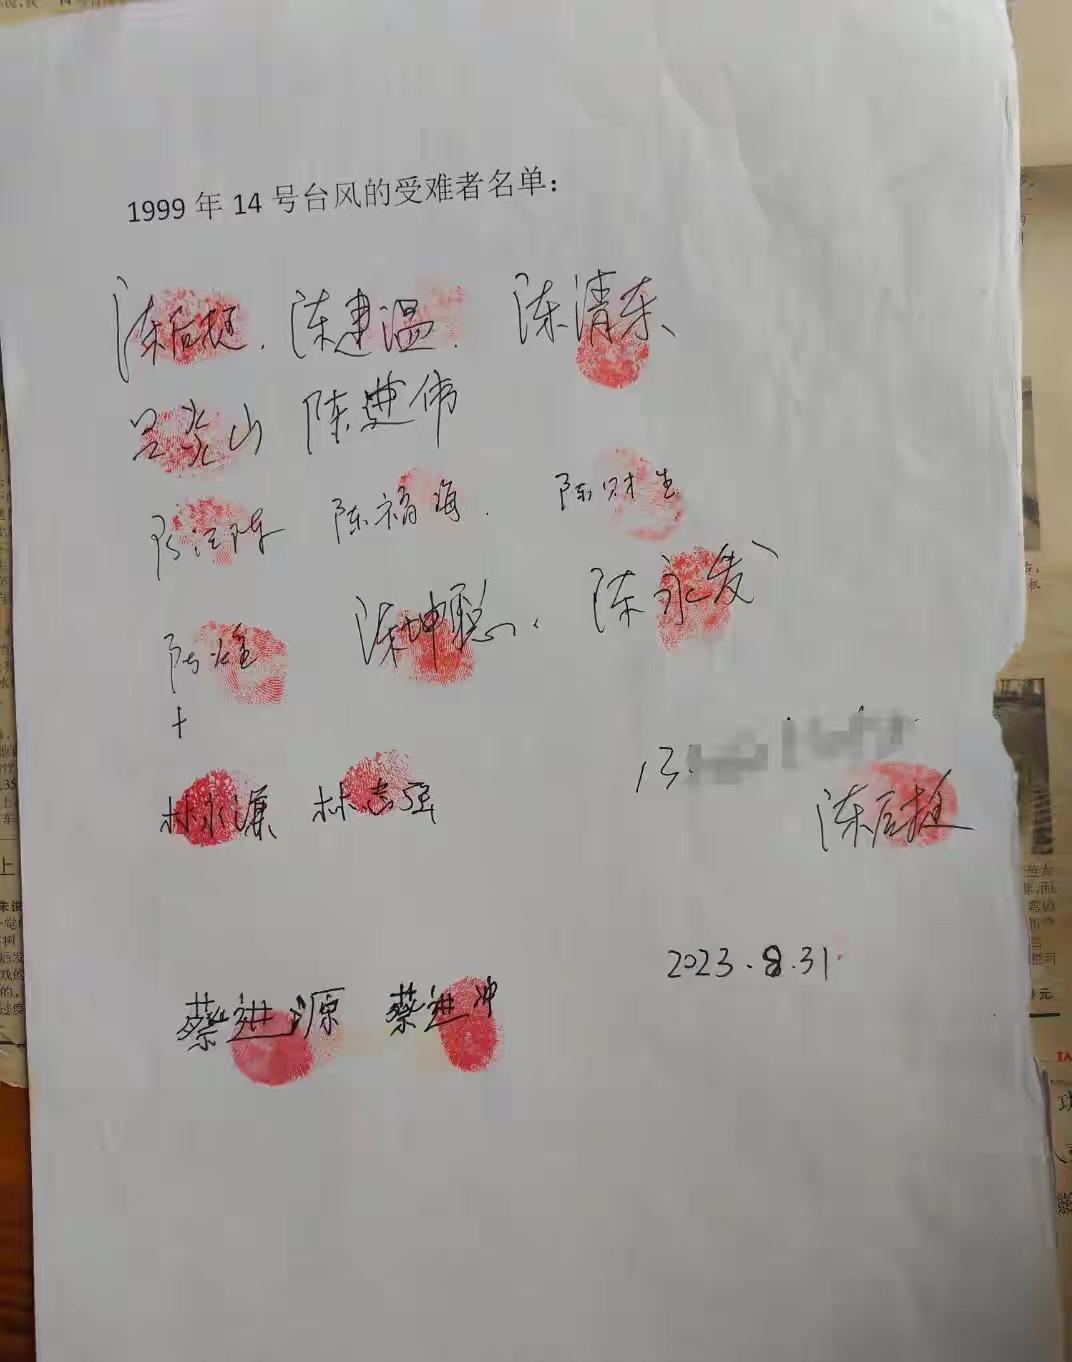 1999 年 14 号台风的受难者名单：
陈后挺. 陈建温. 陈清东、
吕炎山 陈建伟
陈福海. 陈财生
陈坤聪. 陈永发
十
林永源 林志强
13.
陈后挺
2023.8.31
蔡进源 蔡进冲